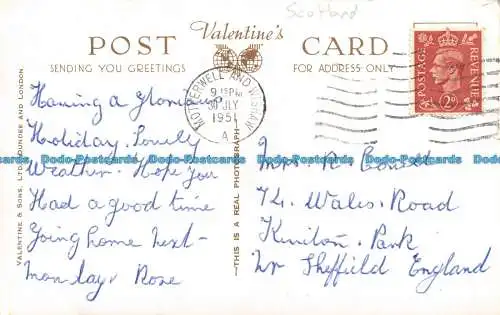 Scotland
Valentine's
POST CARD
SENDING YOU GREETINGS
FOR ADDRESS ONLY
MOTHERWELL AND WISHAW
9 15 PM
30 JLY
1951
A
POSTAGE REVENUE
2D
VALENTINE & SONS, LTD., DUNDEE AND LONDON
THIS IS A REAL PHOTOGRAPH
Having a glorious
Holiday. Lovely
Weather. Hope you
Had a good time
Going home next
monday Rose
Mrs. R.
72. Wales. Road
Kiveton. Park
Nr Sheffield England
Dodo-Postcards Dodo-Postcards Dodo-Postcards Dodo-Postcards